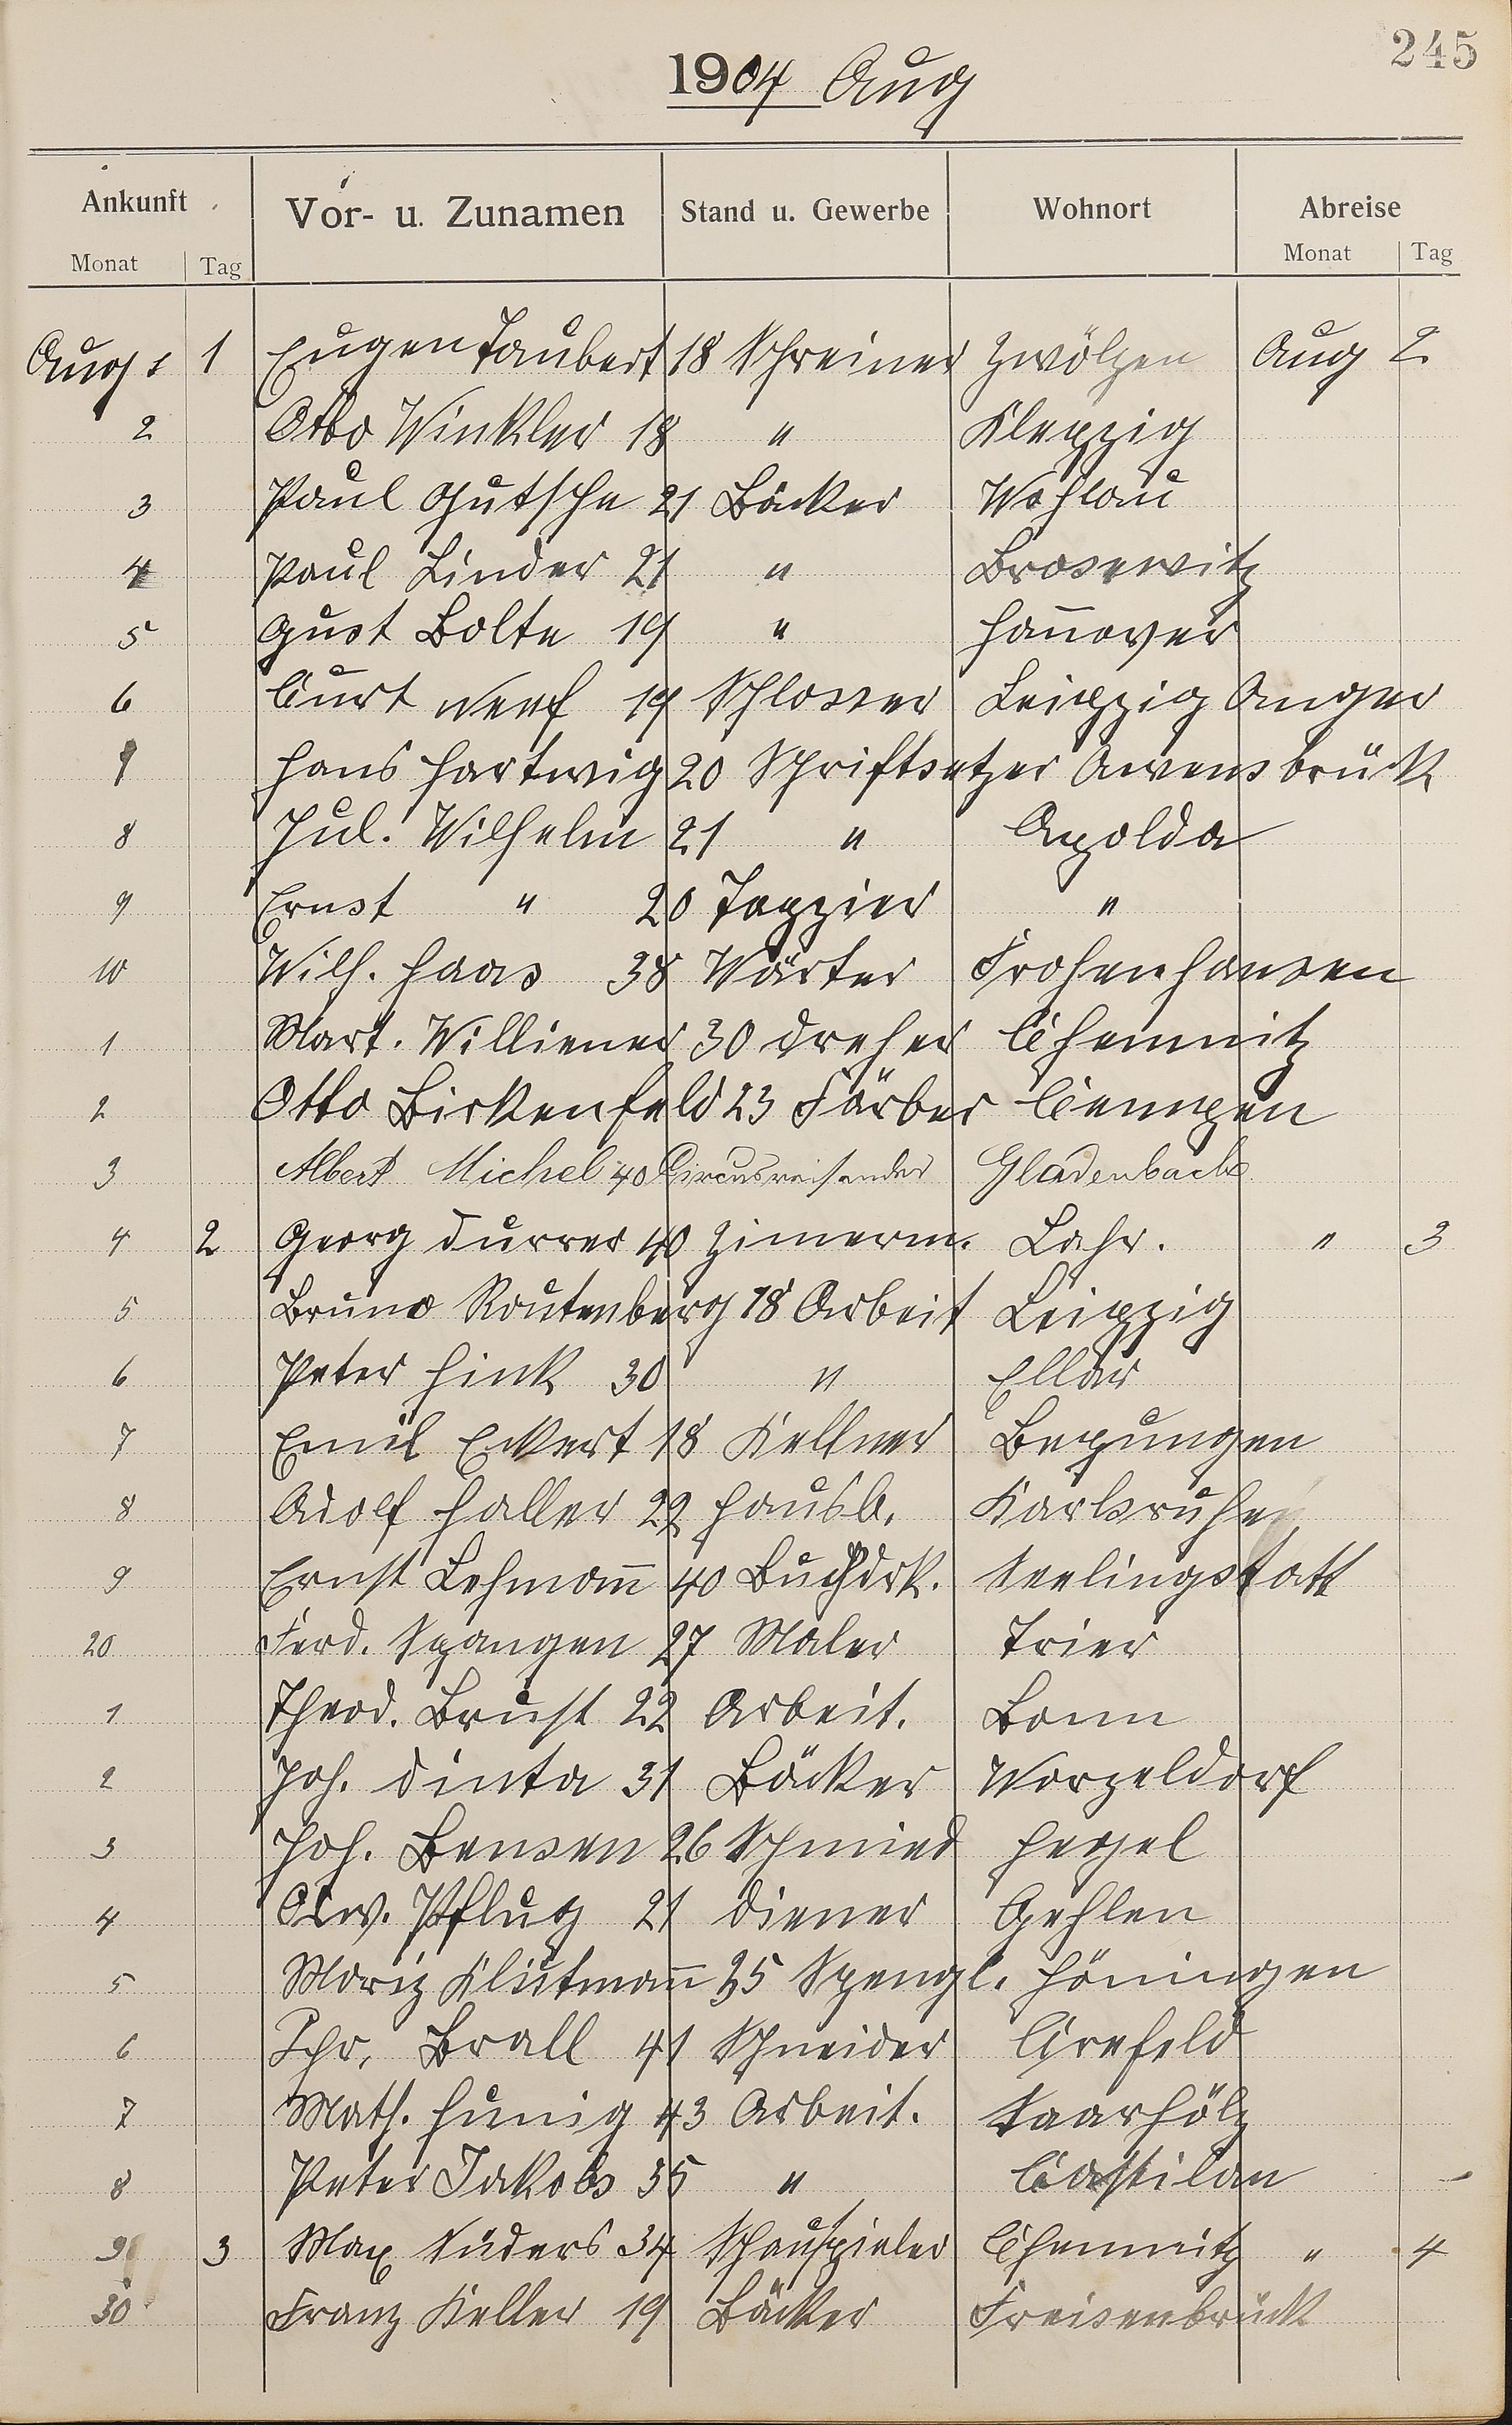 245
1904 Aug
Ankunft Vor- u. Zunamen Stand u. Gewerbe Wohnort Abreise
Monat Tag Monat Tag
Aug 1 1 Eugen Taubert 18 Schreiner Zwölzen Aug 2
2 Otto Winkler 18 " Klepzig
3 Paul Gutsche 21 Bäcker Wohlau
4 Paul Linder 21 " Brosewitz
5 Gust Bolte 19 " Hannover
6 Curt Neef 19 Schlosser Leipzig Anger
7 Hans Hartwig 20 Schriftsetzer Awensbrück
8 Jul. Wilhelm 21 " Apolda
9 Ernst " 20 Tapzier "
10 Wilh. Haas 38 Wärter Frohenhausen
1 Mart. Williener 30 Dreher Chemnitz
2 Otto Birkenfeld 23 Färber Cempen
3 Albert Michel 40 Circusreisender Gladenbach
4 2 Georg Durrer 40 Zimerm. Lahr. " 3
5 Bruno Rautenberg 18 Arbeit Leipzig
6 Peter Hink 30 " Ellar
7 Emil Eckert 18 Kellner Bepungen
8 Adolf Haller 22 Hausb. Karlsruhe
9 Ernst Lehmann 40 Buchdrk. Seelingstatt
20 Ferd. Spangen 27 Maler Trier
1 Theod. Brust 22 Arbeit. Bonn
2 Joh. Dinta 31 Bäcker Worzeldorf
3 Joh. Bensen 26 Schmied
4 Osw. Pflug 21 Diener Gehlen
5 Moriz Klütmann 35 Spengl. Höningen
6 Chr. Brall 41 Schneider Crefeld
7 Math. Hunig 43 Arbeit. Saarhölz
8 Peter Jakobs 35 " Castilan
9 3 Max Süders 34 Schauspieler Chemnitz " 4
30 Franz Keller 19 Bäcker Freisenbrück